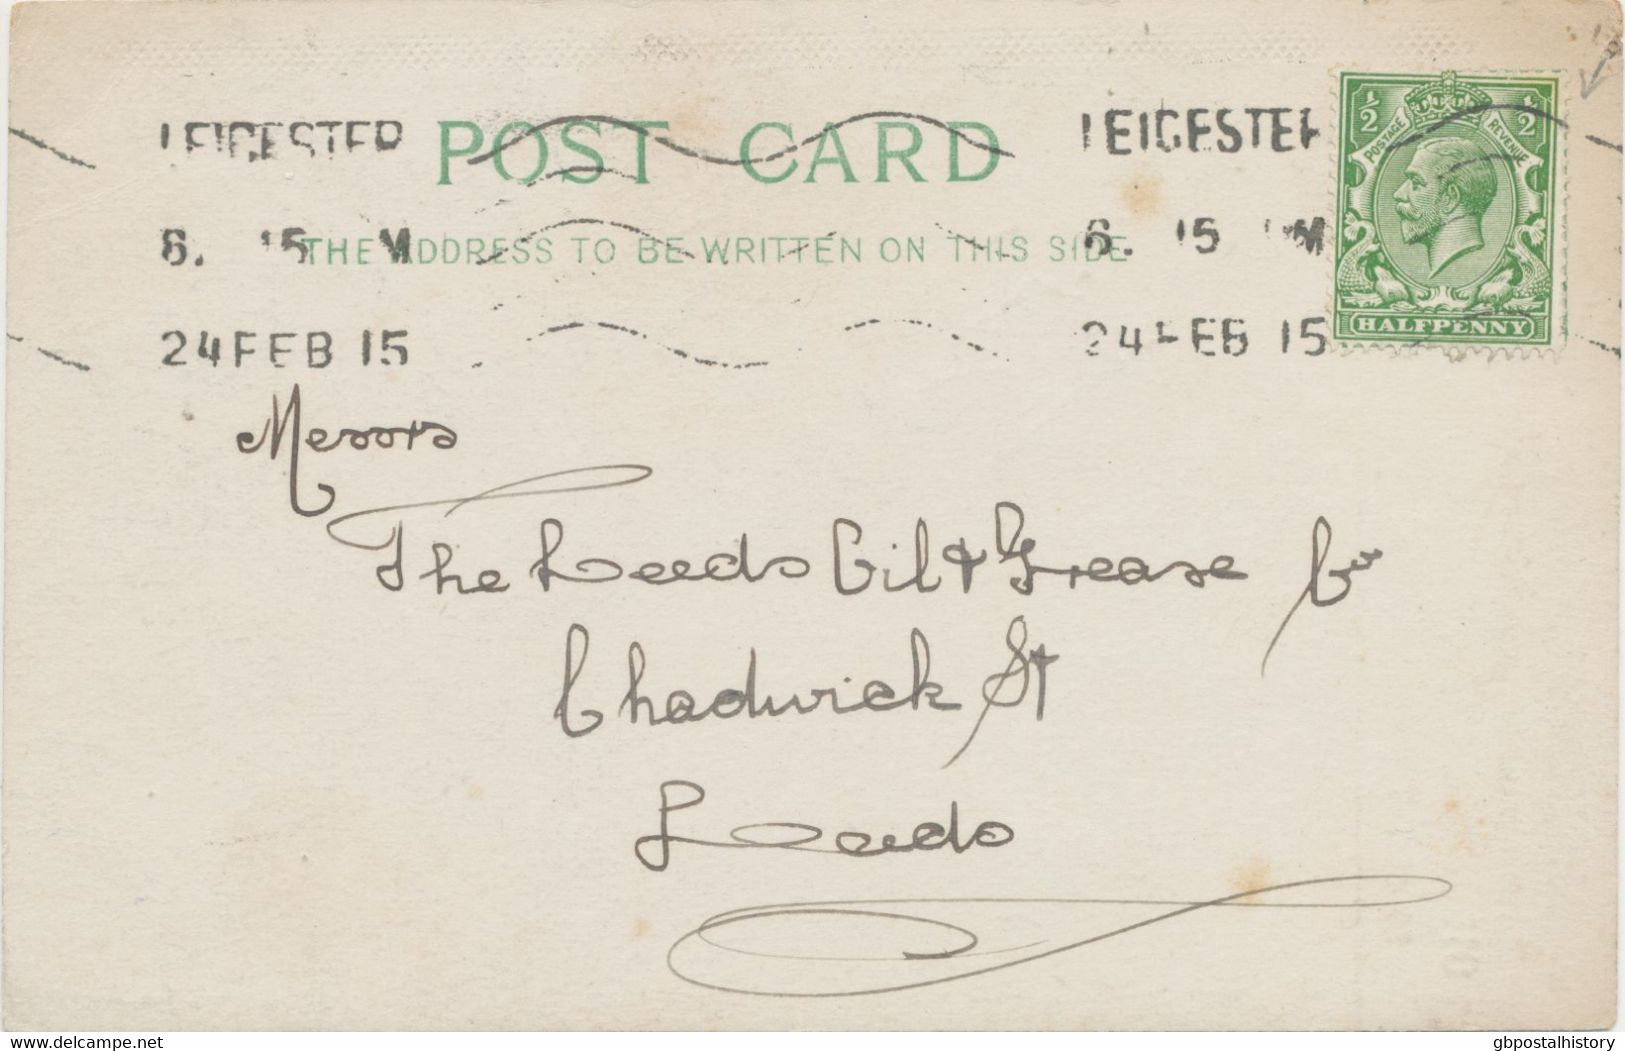 LEICESTER POST CARD LEICESTER
6. 15 M THE ADDRESS TO BE WRITTEN ON THIS SIDE 6. 15 M
24 FEB 15 24 FEB 15
½ ½
POSTAGE REVENUE
HALFPENNY
Messrs
The Leeds Oil & Grease Co
Chadwick St
Leeds
delcampe.net
gbpostalhistory